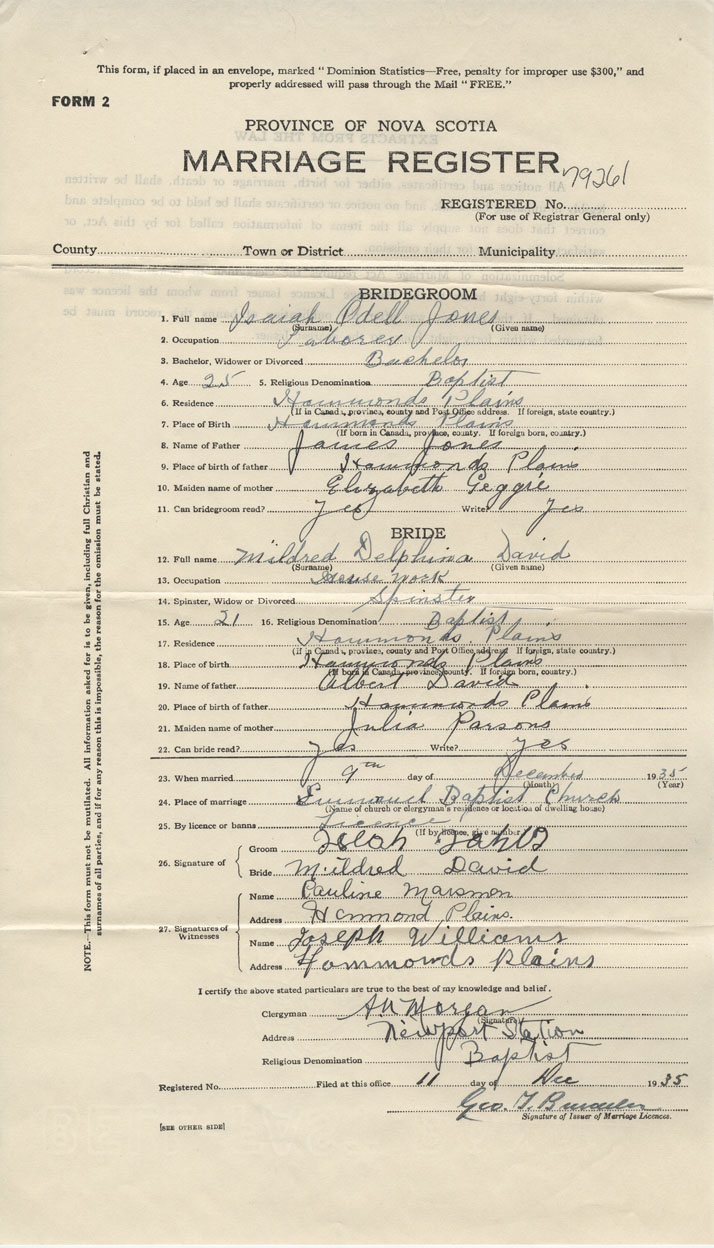 This form, if placed in an envelope, marked "Dominion Statistics—Free, penalty for improper use $300," and
properly addressed will pass through the Mail "FREE."
FORM 2
PROVINCE OF NOVA SCOTIA
MARRIAGE REGISTER
79261
REGISTERED No.
(For use of Registrar General only)
County Town or District Municipality
BRIDEGROOM
1. Full name Isaiah Odell Jones
(Surname) (Given name)
2. Occupation Laborer
3. Bachelor, Widower or Divorced Bachelor
4. Age 25 5. Religious Denomination Baptist
6. Residence Hammonds Plains
(If in Canada, province, county and Post Office address. If foreign, state country.)
7. Place of Birth Hammonds Plains
(If born in Canada, province, county. If foreign born, country.)
8. Name of Father James Jones
9. Place of birth of father Hammonds Plains
10. Maiden name of mother Elizabeth Peggie
11. Can bridegroom read? Yes Write? Yes
BRIDE
12. Full name Mildred Delphina David
(Surname) (Given name)
13. Occupation House Work
14. Spinster, Widow or Divorced Spinster
15. Age 21 16. Religious Denomination Baptist
17. Residence Hammonds Plains
(If in Canada, province, county and Post Office address. If foreign, state country.)
18. Place of birth Hammonds Plains
(If born in Canada, province, county. If foreign born, country.)
19. Name of father Albert David
20. Place of birth of father Hammonds Plains
21. Maiden name of mother Julia Parsons
22. Can bride read? Yes Write? Yes
23. When married 9th day of December 1935
(Month) (Year)
24. Place of marriage Emmanuel Baptist Church
(Name of church or clergyman's residence or location of dwelling house)
25. By licence or banns Licence
(If by licence, give number)
26. Signature of
Groom
Bride Mildred David
27. Signatures of Witnesses
Name Pauline Marsmen
Address Hammond Plains.
Name Joseph Williams
Address Hommonds Plains
I certify the above stated particulars are true to the best of my knowledge and belief.
Clergyman A W Morgan
(Signature)
Address Newport Station
Religious Denomination Baptist
Registered No. Filed at this office 11 day of Dec 1935
Geo. T.
Signature of Issuer of Marriage Licences.
[SEE OTHER SIDE]
NOTE.—This form must not be mutilated. All information asked for is to be given, including full Christian and
surnames of all parties, and if for any reason this is impossible, the reason for the omission must be stated.